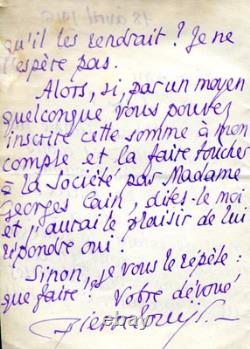 qu'il les rendrait ? Je ne
l'espère pas.
Alors, si, par un moyen
quelconque vous pouvez
inscrire cette somme à mon
compte et la faire toucher
à la Société par Madame
Georges Cain, dites-le moi
et j'aurai le plaisir de lui
répondre oui.
Sinon, je vous le répète :
que faire ? Votre dévoué
Pierre Louÿs
ebay